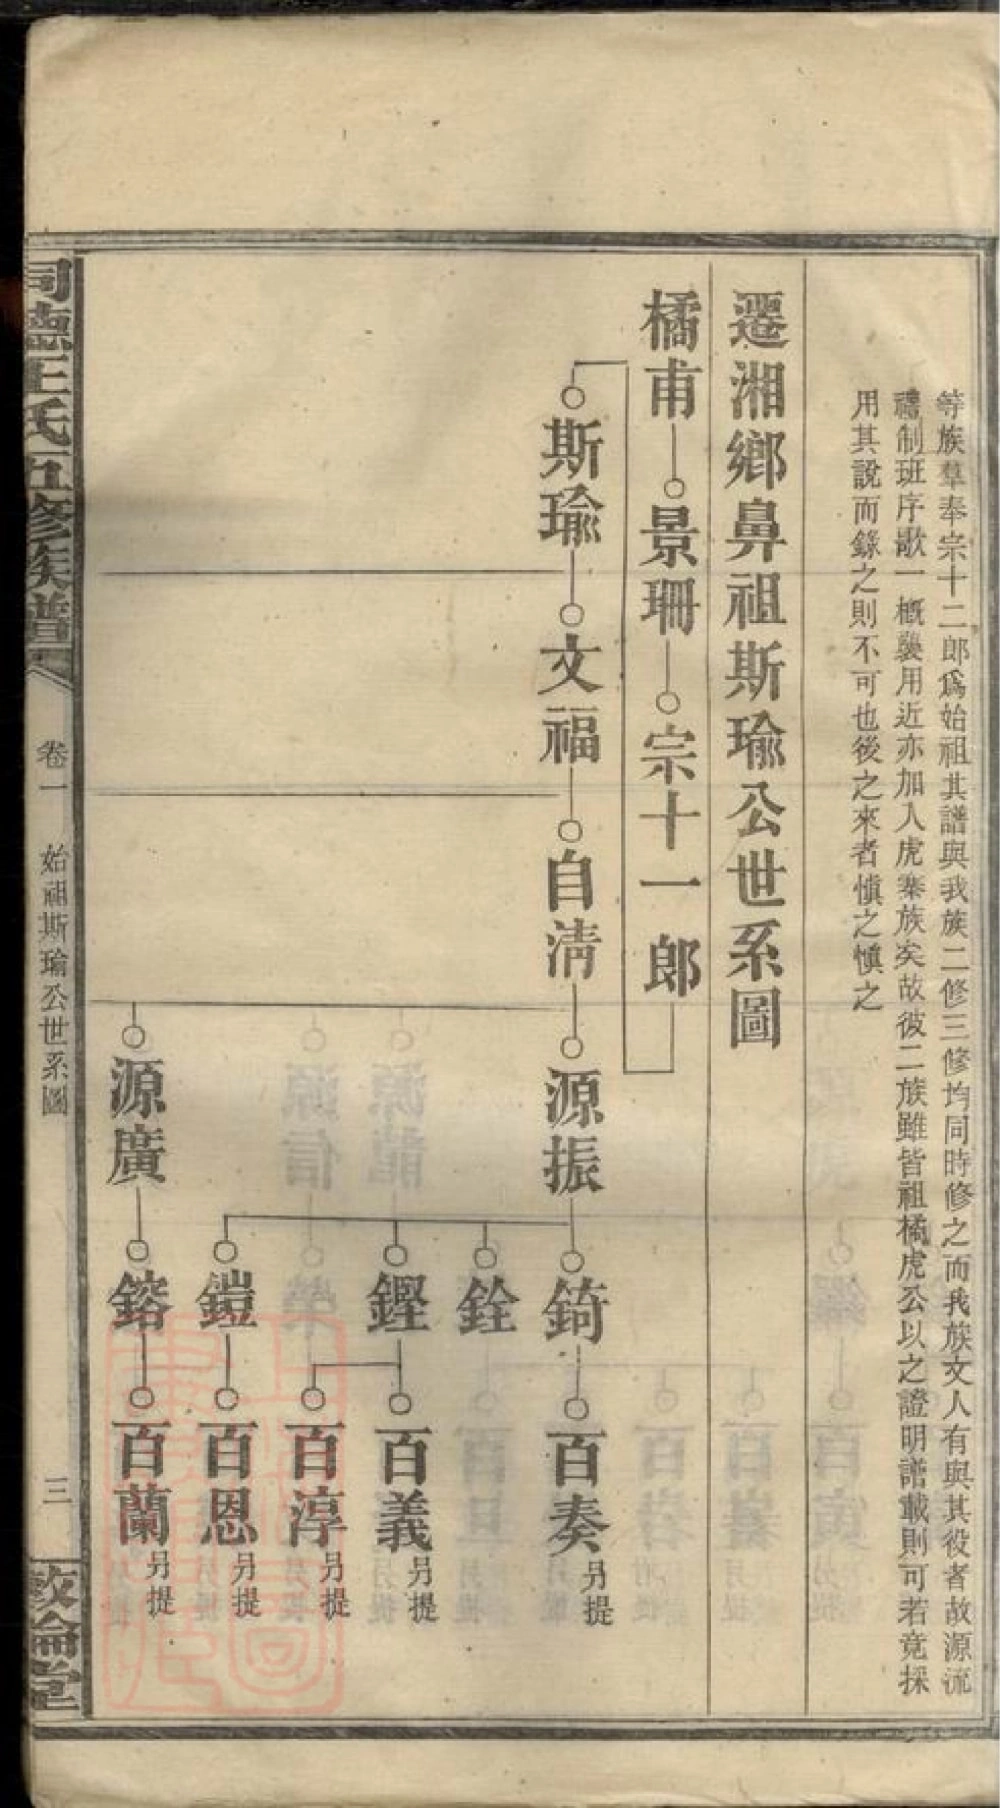 等族羣奉宗十二郎爲始祖其譜與我族二修三修均同時修之而我族文人有與其役者故源流
禮制班序歌一概襲用近亦加入虎寨族矣故彼二族雖皆祖橘虎公以之證明譜載則可若竟採
用其說而錄之則不可也後之來者愼之愼之
遷湘鄉鼻祖斯瑜公世系圖
橘甫 景珊 宗十一郎
斯瑜 文福 自淸 源振 錡 百奏 另提
銓
鏗 百義 另提
百淳 另提
鎧 百恩 另提
源廣 鎔 百蘭 另提
同德王氏五修族譜
卷一 始祖斯瑜公世系圖
三
敦倫堂